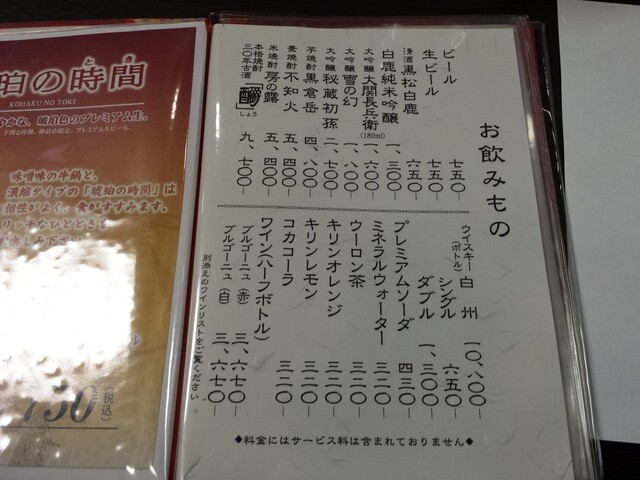 お飲みもの
ビール 七五〇
生ビール 七五〇
清酒 黒松白鹿 六五〇
白鹿純米吟醸 一、三〇〇
大吟醸 大関長兵衛(180ml) 一、六〇〇
大吟醸 雪の幻 一、七〇〇
大吟醸 秘蔵初孫 二、一〇〇
芋焼酎 黒倉岳 四、八〇〇
麦焼酎 不知火 五、四〇〇
米焼酎 房の露 五、四〇〇
本格焼酎 三〇年古酒 しょう 九、七〇〇
ウイスキー(ボトル) 白州 一〇、八〇〇
シングル 六五〇
ダブル 一、三〇〇
プレミアムソーダ 四三〇
ミネラルウォーター 三二〇
ウーロン茶 三二〇
キリンオレンジ 三二〇
キリンレモン 三二〇
コカコーラ 三二〇
ワイン(ハーフボトル)
ブルゴーニュ(赤) 三、六七〇
ブルゴーニュ(白) 三、六七〇
別添えのワインリストをご覧ください。
◆料金にはサービス料は含まれておりません◆
珀の時間
とき
KOHAKU NO TOKI
やかな、琥珀色のプレミアム生。
味噌味の牛鍋と、
濃醇タイプの「琥珀の時間」は
相性がよく、食がすすみます。
リッチなひとときを
750(税込)